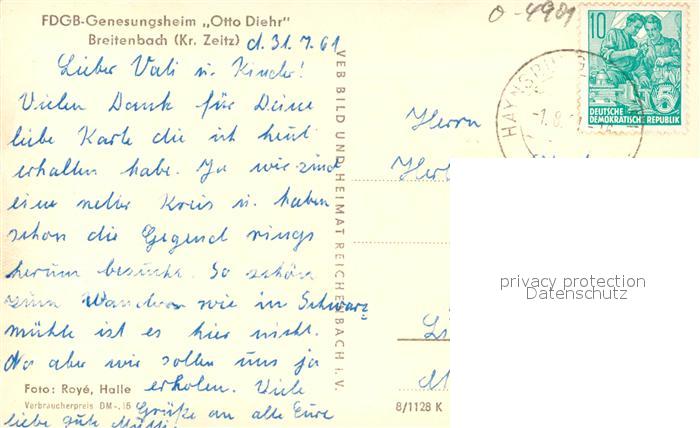 O-4901
FDGB-Genesungsheim „Otto Diehr"
Breitenbach (Kr. Zeitz) d. 31.7.61
Lieber Vati u. Kinder!
Vielen Dank für Deine
liebe Karte die ich heut
erhalten habe. Ja wir sind
eine netter Kreis u. haben
schon die Gegend rings
herum besucht. So schön
zum Wandern wie in Schwarz=
mühle ist es hier nicht.
Na aber wir sollen uns ja
erholen. Viele
Grüße an alle Eure
liebe gute Mutti
Foto: Royé, Halle
Verbraucherpreis DM -,15
VEB BILD UND HEIMAT REICHENBACH i. V.
8/1128 K
Herrn
10
DEUTSCHE
DEMOKRATISCHE REPUBLIK
5
HAYNSBURG
-1.8.
privacy protection
Datenschutz